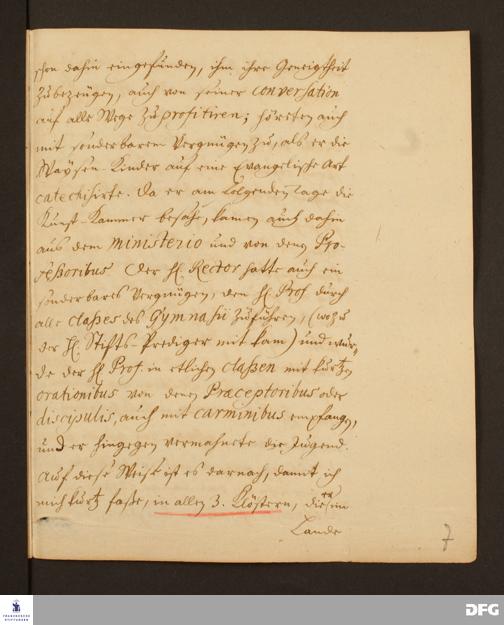 schon dahin eingefunden, ihm ihre Geneigtheit
zubezeügen, auch von seiner conversation
auf alle Wege zu profitiren; höreten auch
mit sonderbarem Vergnügen zu, als er die
Waysen-Kinder auf eine Evangelische Art
catechisirte. Da er am folgenden Tage die
Kunst-Kammer besahe, kamen auch dahin
aus dem Ministerio und von denen Pro-
feßoribus (der H. Rector hatte auch ein
sonderbares Vergnügen, den H. Prof. durch
alle Claßes des Gymnasii zuführen, (wozu
der H. Stifts-Prediger mit kam) und wur-
de der H. Prof. in etlichen Claßen mit kurtzen
orationibus von denen Præceptoribus oder
discipulis, auch mit carminibus empfangen,
und er hingegen vermahnete die Jugend.
Auf diese Weise ist es darnach, damit ich
mich kurtz faße, in allen 3. Klöstern, die er im
Lande
7
FRANCKESCHE
STIFTUNGEN
DFG